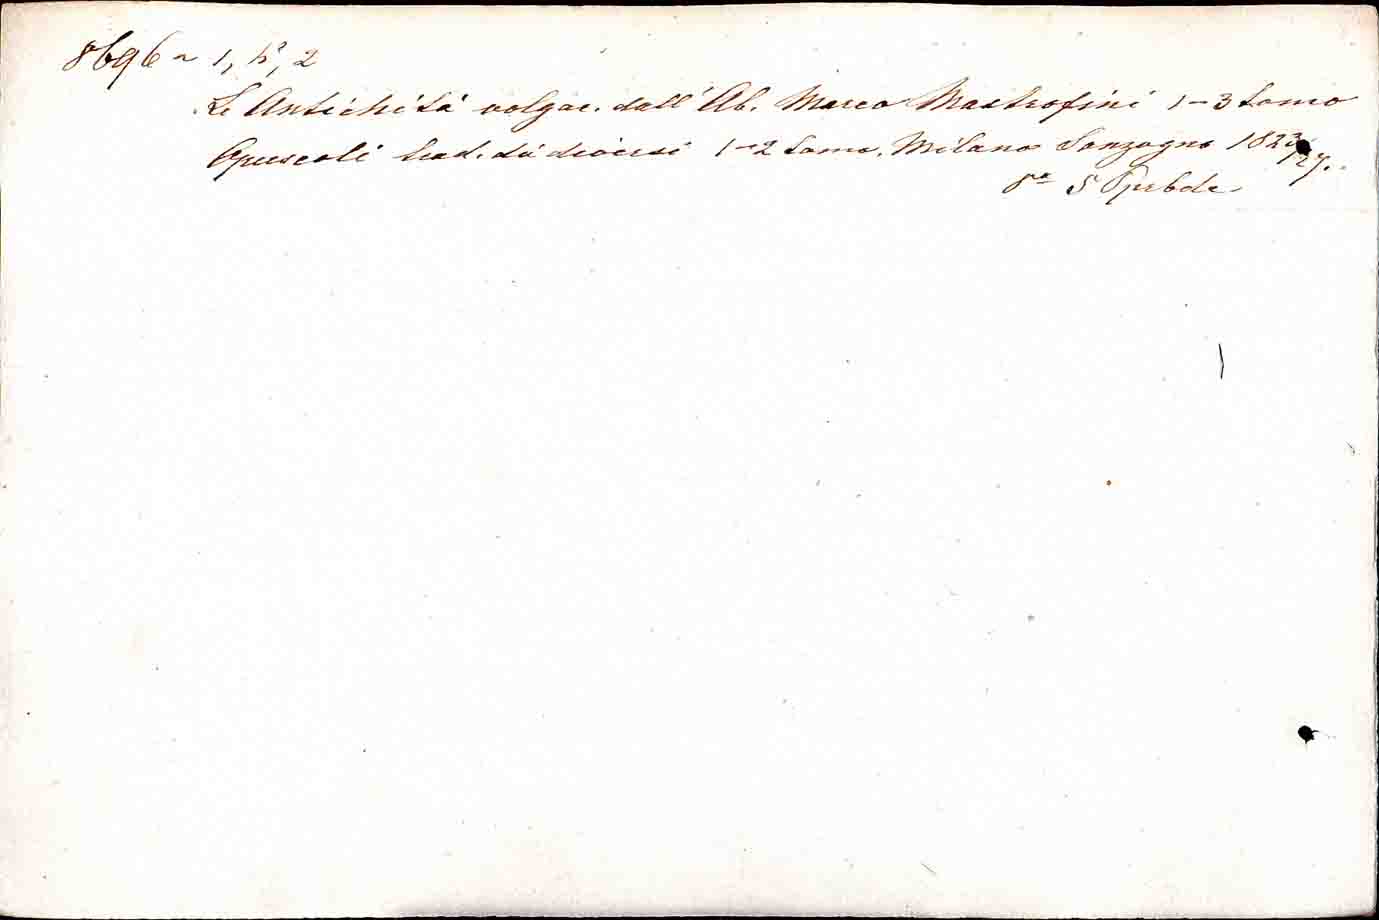 8696 ~ 1, h, 2
Le Antichitá volgar. dall' Ab. Marco Mastrofini 1-3 tomo
Opuscoli trad. da diversi 1-2 tomo. Milano Sonzogno 1823/27.
8° 5 Ppbde